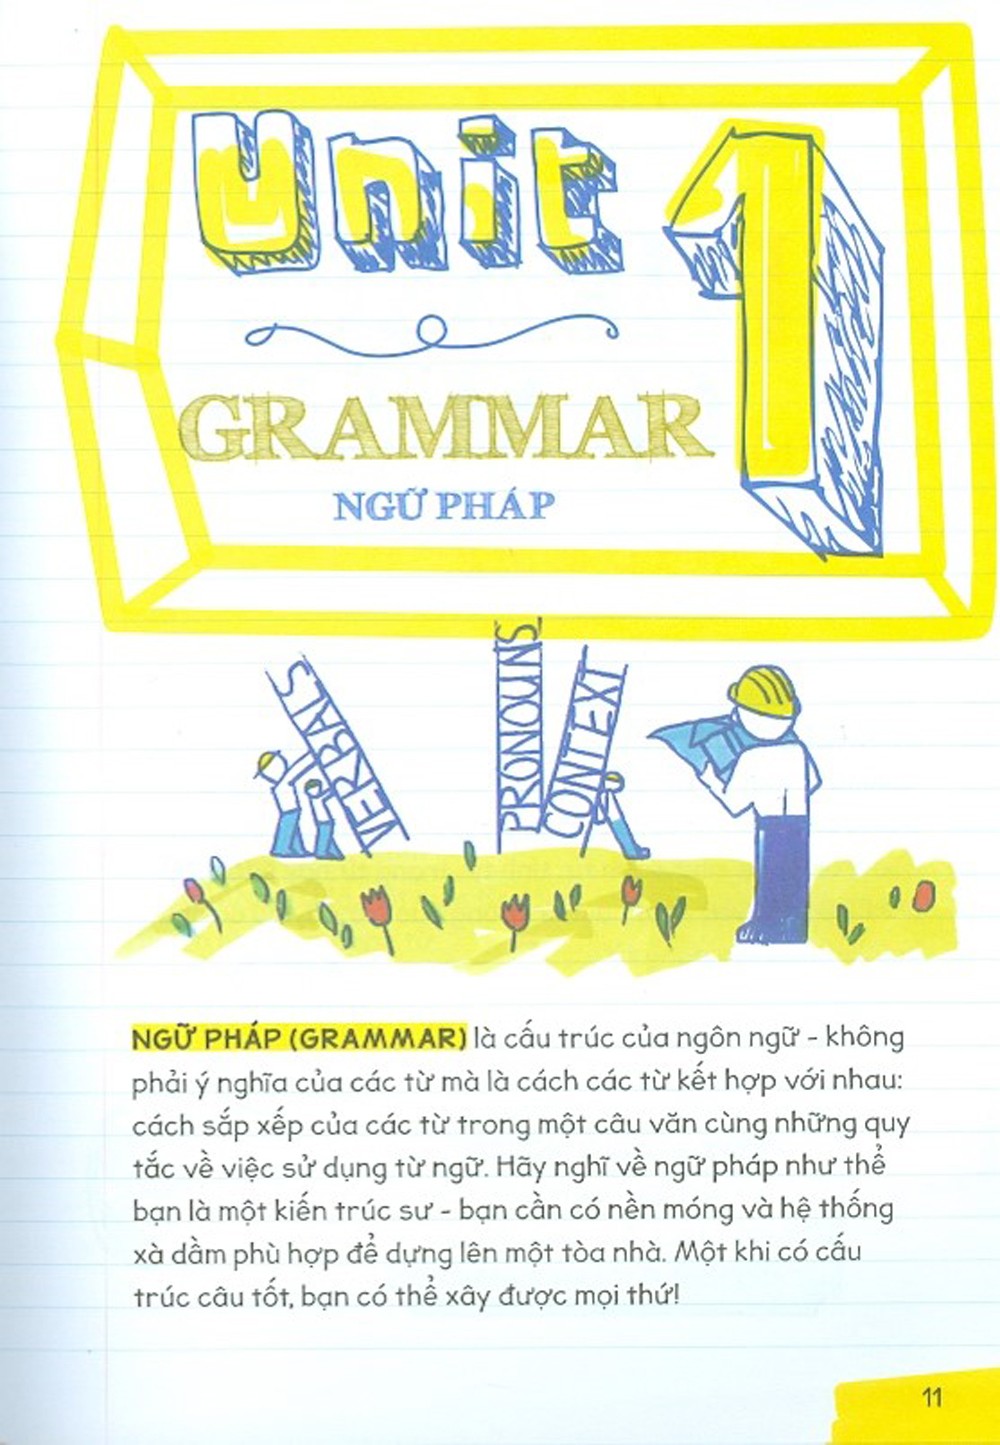 Unit 1
GRAMMAR
NGỮ PHÁP
VERBALS
PRONOUNS
CONTEXT
NGỮ PHÁP (GRAMMAR) là cấu trúc của ngôn ngữ - không
phải ý nghĩa của các từ mà là cách các từ kết hợp với nhau:
cách sắp xếp của các từ trong một câu văn cùng những quy
tắc về việc sử dụng từ ngữ. Hãy nghĩ về ngữ pháp như thể
bạn là một kiến trúc sư - bạn cần có nền móng và hệ thống
xà dầm phù hợp để dựng lên một tòa nhà. Một khi có cấu
trúc câu tốt, bạn có thể xây được mọi thứ!
11